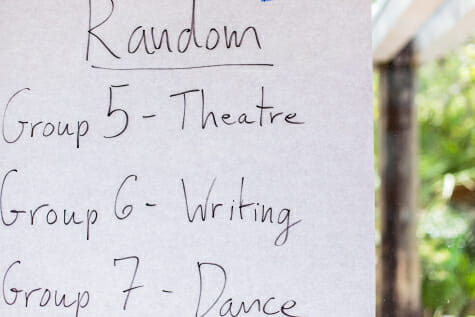 Random
Group 5 - Theatre
Group 6 - Writing
Group 7 - Dance